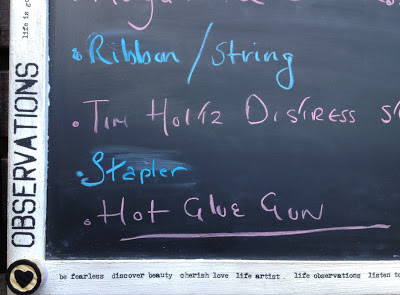 life is
• Ribbon / String
• Tim Holtz Distress
• Stapler
• Hot Glue Gun
OBSERVATIONS
be fearless discover beauty cherish love life artist. life observations listen to